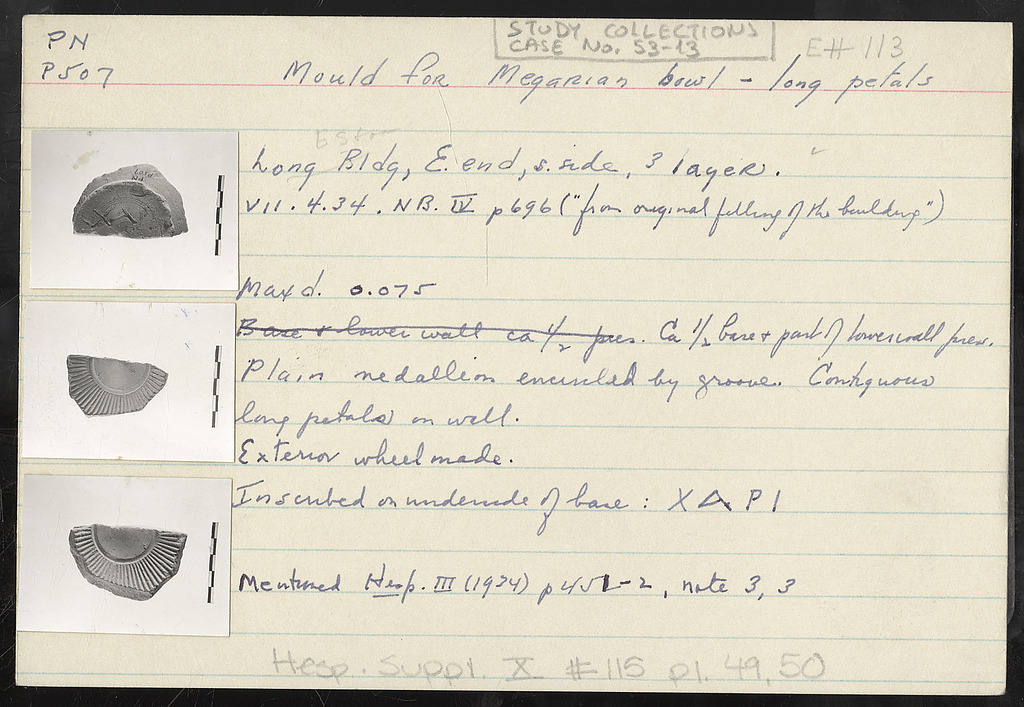 PN
P507
STUDY COLLECTIONS
CASE No. 53-13
E# 113
Mould for Megarian bowl - long petals
Long Bldg, E. end, s. side, 3 layer.
VII. 4.34. NB. IV p 696 ("from original filling of the building")
Max d. 0.075
Base + lower wall ca 1/2 pres. Ca 1/2 base + part of lower wall pres.
Plain medallion encircled by groove. Contiguous
long petals on wall.
Exterior wheelmade.
Inscribed on underside of base: ΧΔΡΙ
Mentioned Hesp. III (1934) p 451-2, note 3, 3
Hesp. Suppl. X #115 pl. 49, 50